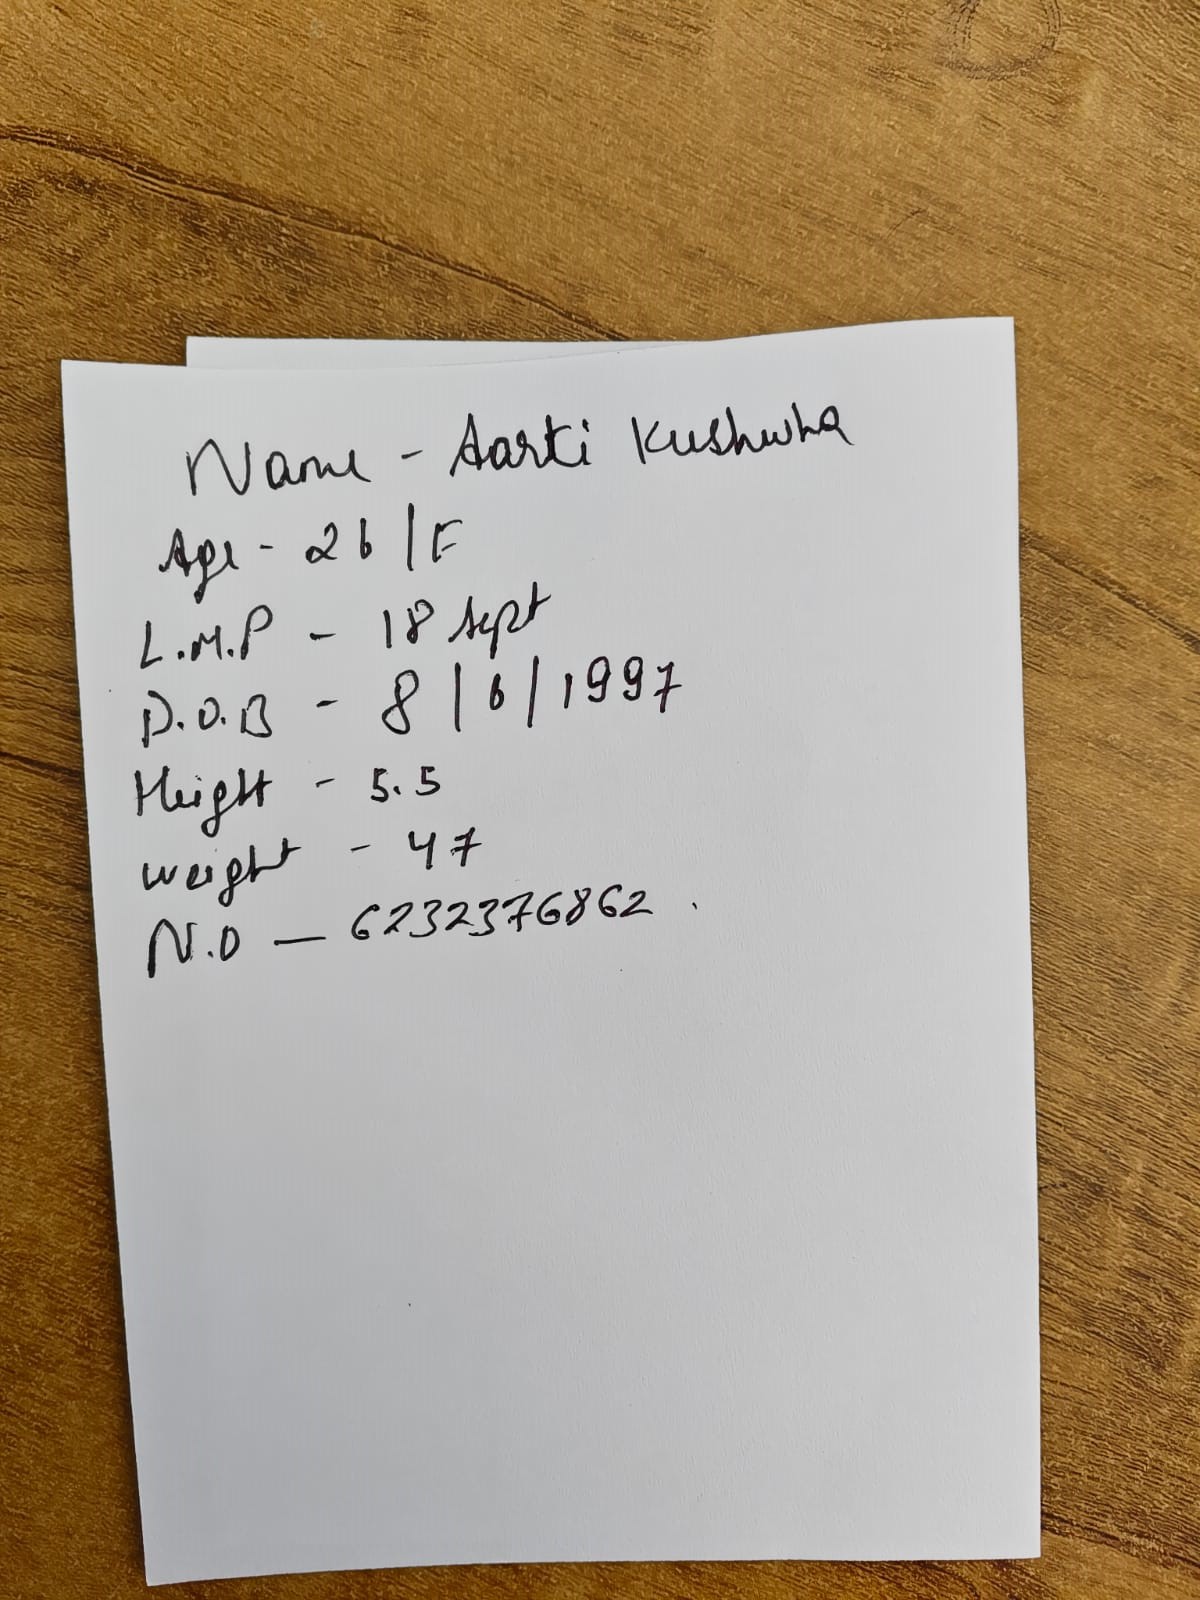 Name - Aarti Kushwha
Age - 26 / F
L.M.P - 18 Sept
D.O.B - 8 / 6 / 1997
Height - 5.5
Weight - 47
N.O — 6232376862